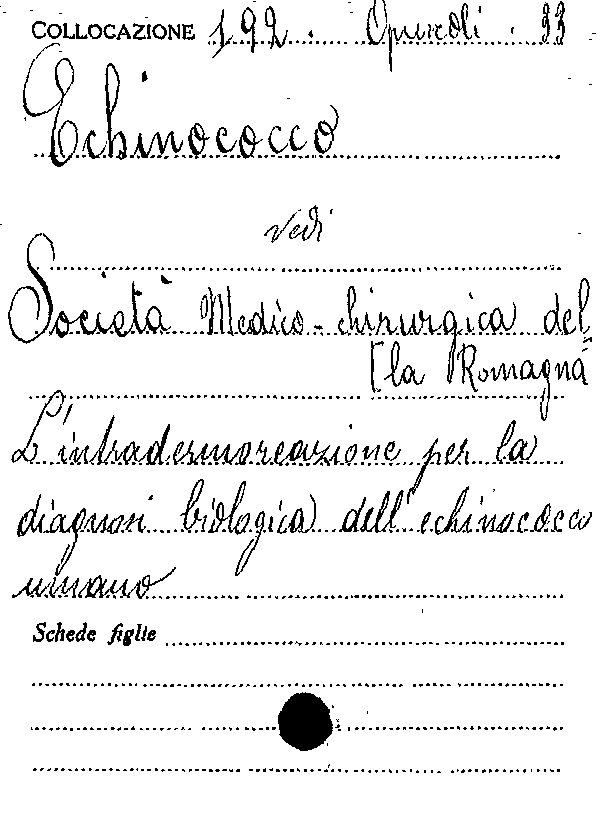 COLLOCAZIONE 192. Opuscoli. 33
Echinococco
Vedi
Società Medico-chirurgica del
[la Romagna
L'intradermoreazione per la
diagnosi biologica dell'echinococco
umano
Schede figlie